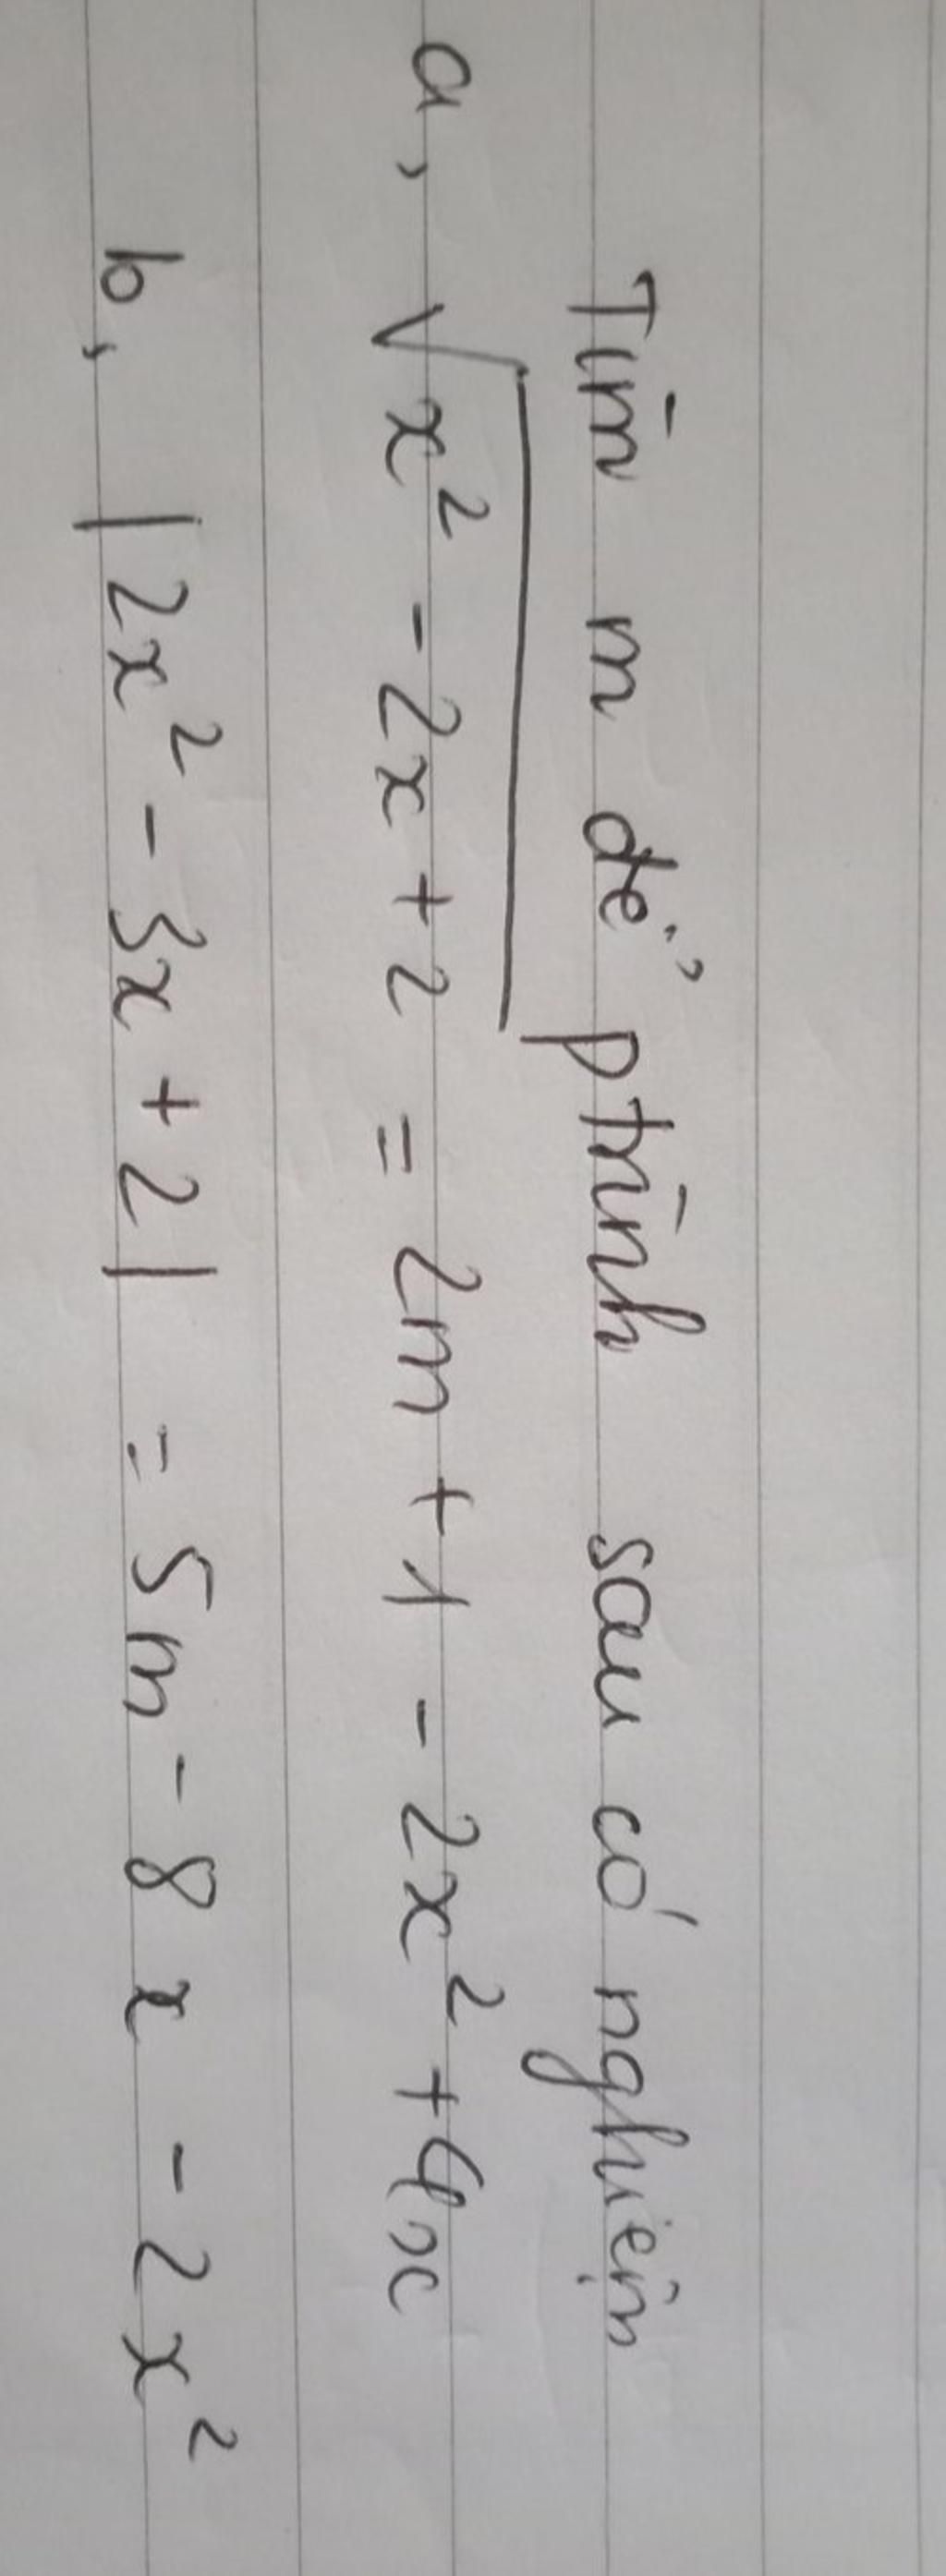 Tìm m để ptrình sau có nghiệm
a, √x² - 2x + 2 = 2m + 1 - 2x² + 4x
b, |2x² - 3x + 2| = 5m - 8x - 2x²